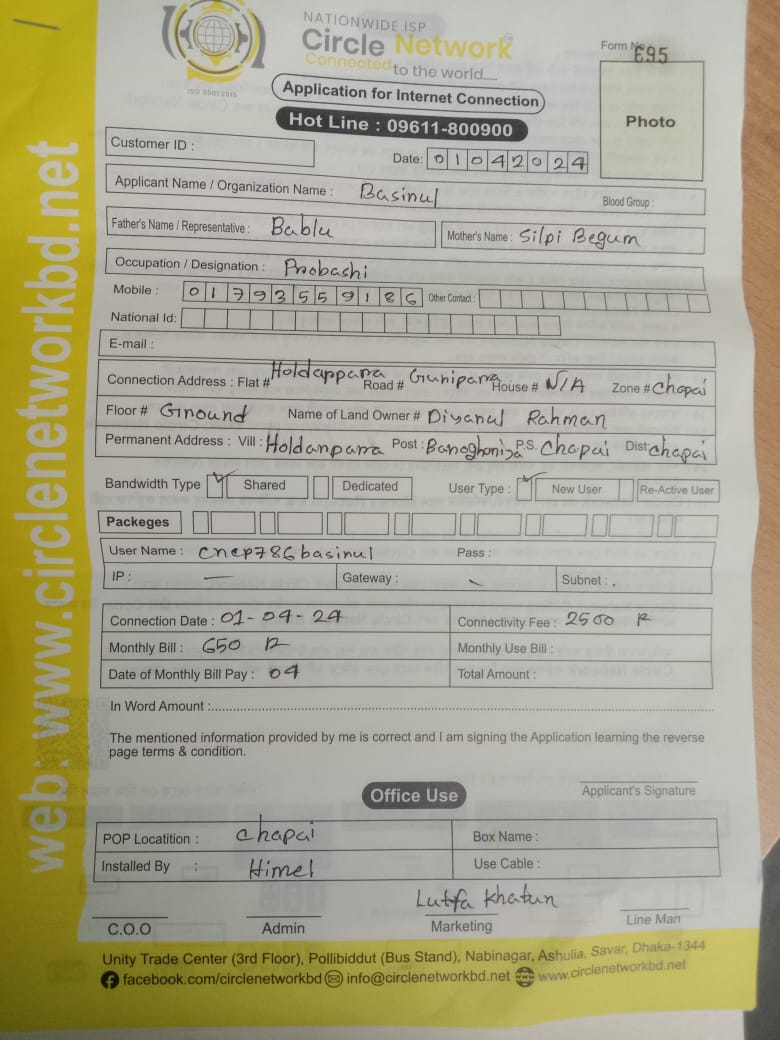 NATIONWIDE ISP
Circle Network
Connected to the world.....
ISO 9001:2015
Form No 695
Application for Internet Connection
Photo
Hot Line : 09611-800900
Customer ID :
Date: 01042024
Applicant Name / Organization Name : Basinul
Blood Group :
Father's Name / Representative : Bablu
Mother's Name : Silpi Begum
Occupation / Designation : Probashi
Mobile : 01793559186 Other Contact :
National Id:
E-mail :
Connection Address : Flat # Holdapparra Road # Guniparra House # N/A Zone # Chapai
Floor # Ground Name of Land Owner # Diyanul Rahman
Permanent Address : Vill : Holdanparra Post : P.S. Chapai Dist: chapai
Bandwidth Type ✓ Shared Dedicated User Type : ✓ New User Re-Active User
Packeges
User Name : cnep786basinul Pass :
IP : — Gateway : Subnet :
Connection Date : 01-04-24 Connectivity Fee : 2500
Monthly Bill : 650 Monthly Use Bill :
Date of Monthly Bill Pay : 04 Total Amount :
In Word Amount :
The mentioned information provided by me is correct and I am signing the Application learning the reverse
page terms & condition.
Applicant's Signature
Office Use
POP Locatition : chapai Box Name :
Installed By : Himel Use Cable :
Lutfa Khatun
C.O.O Admin Marketing Line Man
Unity Trade Center (3rd Floor), Pollibiddut (Bus Stand), Nabinagar, Ashulia, Savar, Dhaka-1344
facebook.com/circlenetworkbd info@circlenetworkbd.net www.circlenetworkbd.net
web: www.circlenetworkbd.net